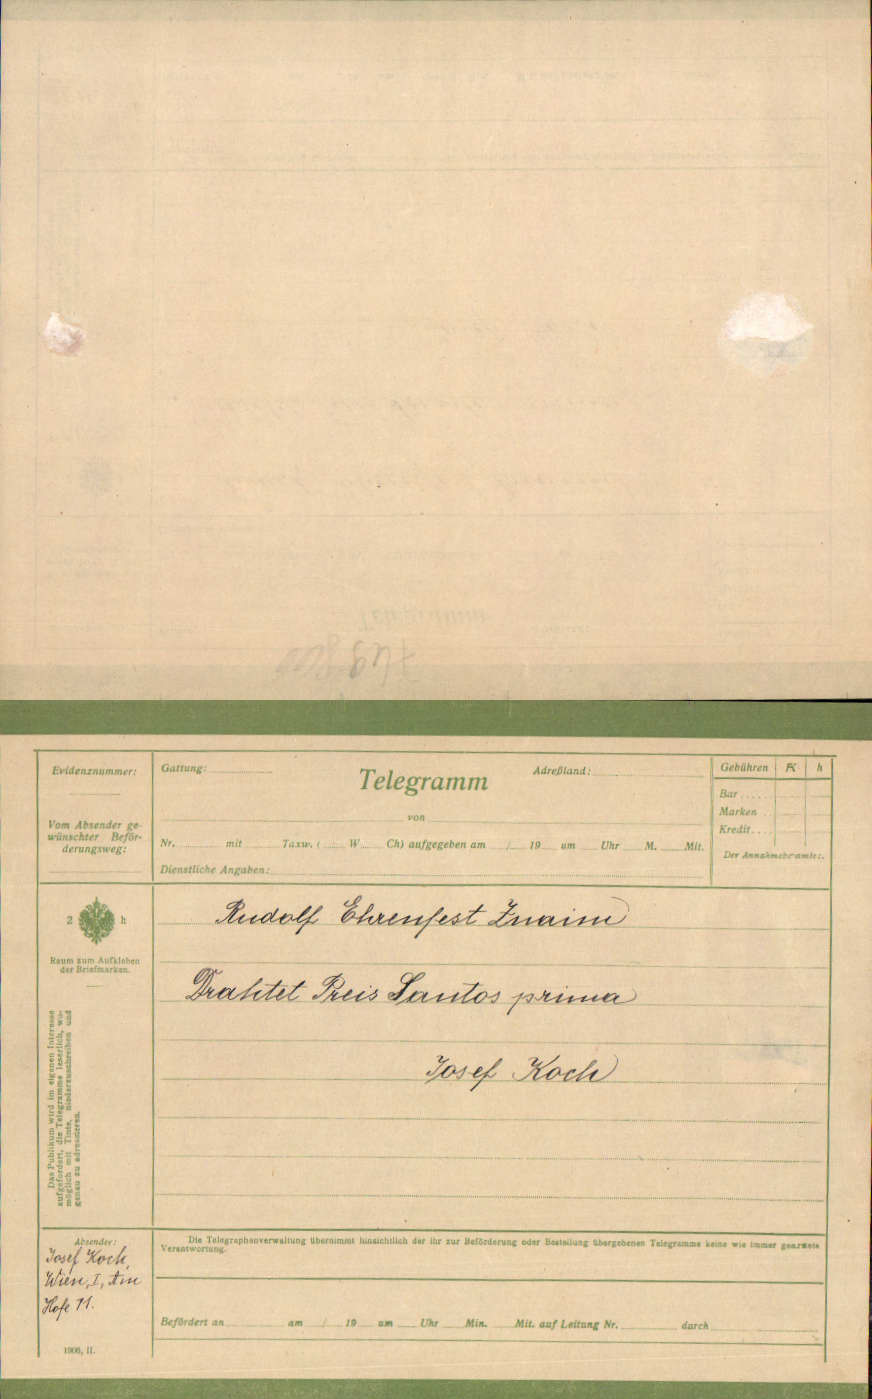 Evidenznummer:
Vom Absender ge-
wünschter Beför-
derungsweg:
Gattung:
Telegramm
Adreßland:
von
Nr. mit Taxw. ( W Ch) aufgegeben am / 19 um Uhr M. Mit.
Dienstliche Angaben:
Gebühren K h
Bar
Marken
Kredit
Der Annahmebeamte:
2 h
Raum zum Aufkleben
der Briefmarken.
Das Publikum wird im eigenen Interesse
aufgefordert, die Telegramme leserlich, wo-
möglich mit Tinte, niederzuschreiben und
genau zu adressieren.
Rudolf Ehrenfest Znaim
Drahtet Preis Santos prima
Josef Koch
Absender:
Josef Koch,
Wien, I, Am
Hofe 11.
1906, II.
Die Telegraphenverwaltung übernimmt hinsichtlich der ihr zur Beförderung oder Bestellung übergebenen Telegramme keine wie immer geartete
Verantwortung.
Befördert an am / 19 um Uhr Min. Mit. auf Leitung Nr. durch